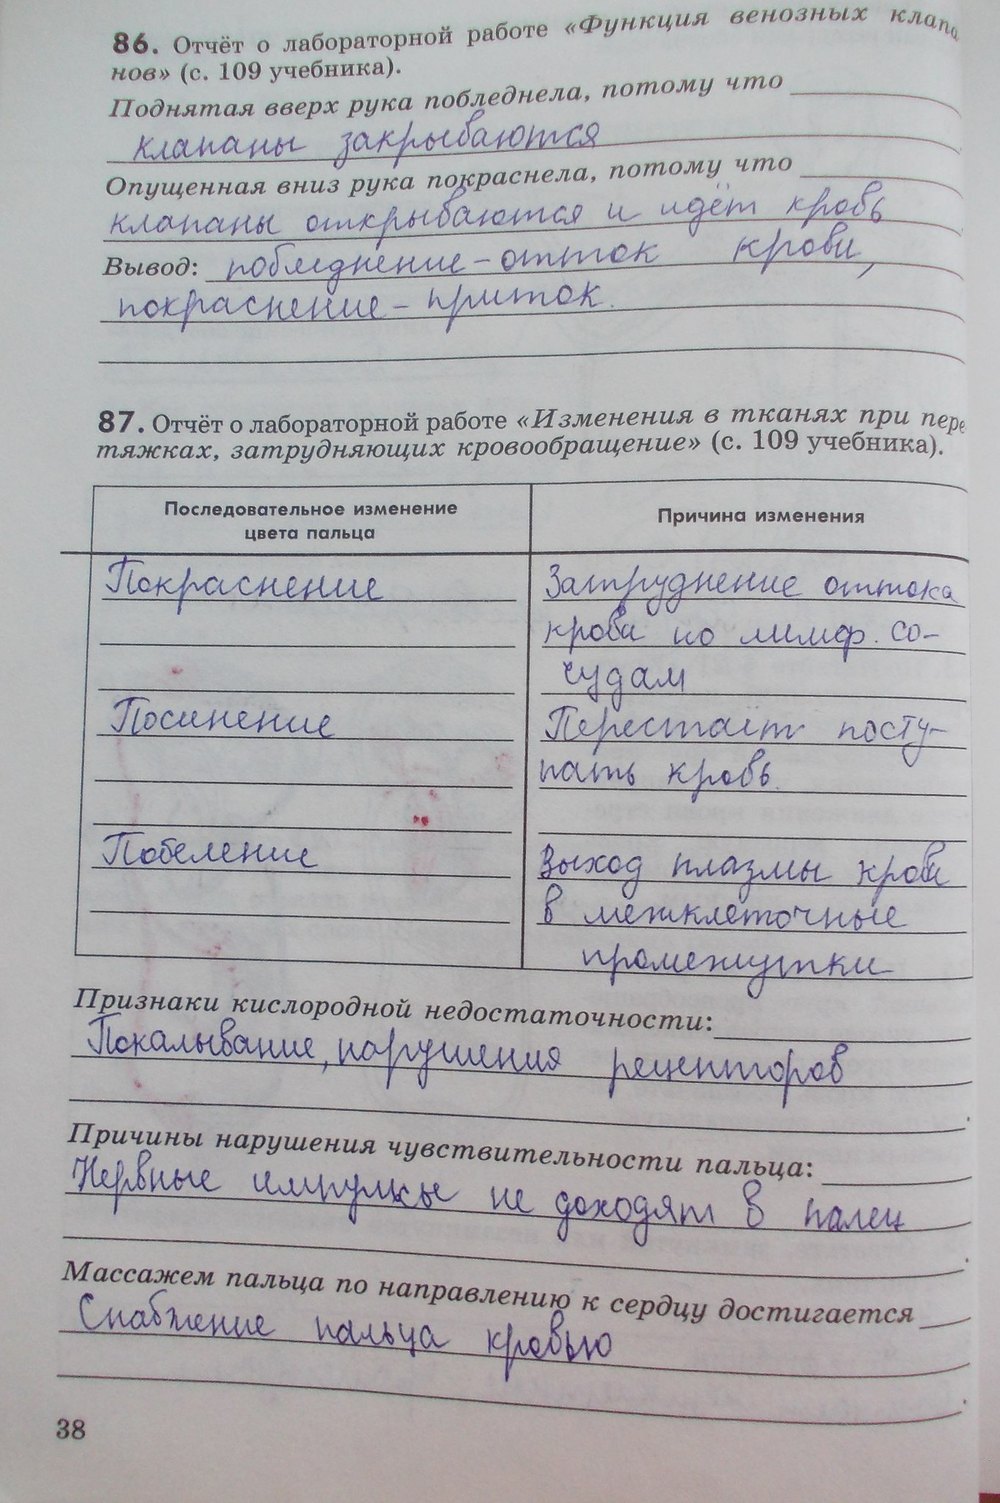 86. Отчёт о лабораторной работе «Функция венозных клапа
нов» (с. 109 учебника).
Поднятая вверх рука побледнела, потому что
клапаны закрываются
Опущенная вниз рука покраснела, потому что
клапаны открываются и идёт кровь
Вывод: побледнение – отток крови,
покраснение – приток.
87. Отчёт о лабораторной работе «Изменения в тканях при пере
тяжках, затрудняющих кровообращение» (с. 109 учебника).
Последовательное изменение
цвета пальца
Причина изменения
Покраснение
Затруднение оттока
крови по лимф. со-
судам
Посинение
Перестаёт посту-
пать кровь.
Побеление
Выход плазмы крови
в межклеточные
промежутки
Признаки кислородной недостаточности:
Покалывание, нарушения рецепторов
Причины нарушения чувствительности пальца:
Нервные импульсы не доходят в палец
Массажем пальца по направлению к сердцу достигается
Снабжение пальца кровью
38